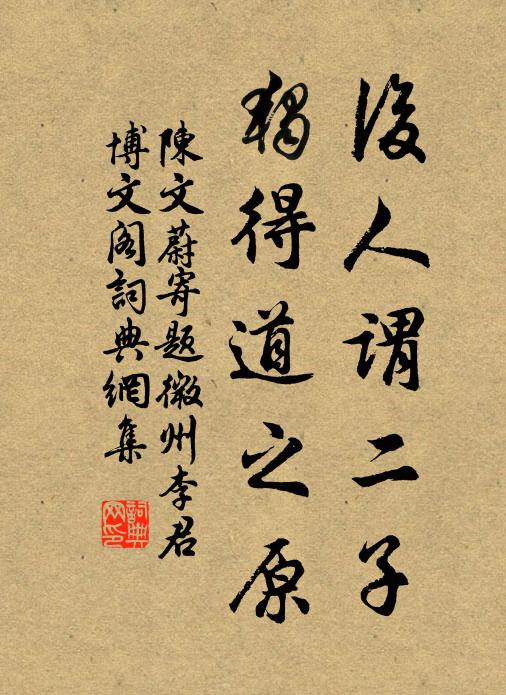 後人謂二子
獨得道之原
陳文蔚寄題徽州李君
博文閣詞典網集
詞典網印